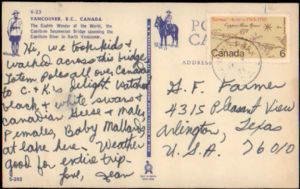 V-23
VANCOUVER, B.C., CANADA
The Eighth Wonder of the World, the
Capilano Suspension Bridge spanning the
Capilano River in North Vancouver.
Hi, we took kids &
walked across this bridge
Totem Poles all over Canada
to C. & K.'s delight. Watched
black & white swans &
Canadian Geese - males
Females, Baby Mallards
at lake here. Weather
good for entire trip.
love, Jean
PO
CA
Canada 6
G. F. Farmer
4315 Pleasant View
Arlington, Texas
U.S.A. 76010